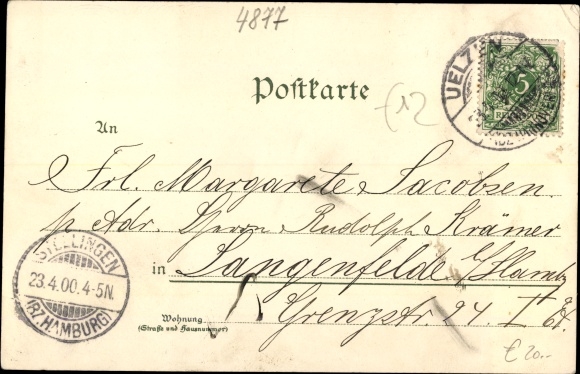 4877
UELZEN
5
Postkarte
£12
An
Frl. Margarete Jacobsen
p. Adr. Herrn Rudolph Krämer
in Langenfelde b/Hambg
Wohnung
(Straße und Hausnummer)
Grenzstr. 24 I Et.
STELLINGEN
23.4.00.4-5N.
(BZ. HAMBURG)
€ 20.-